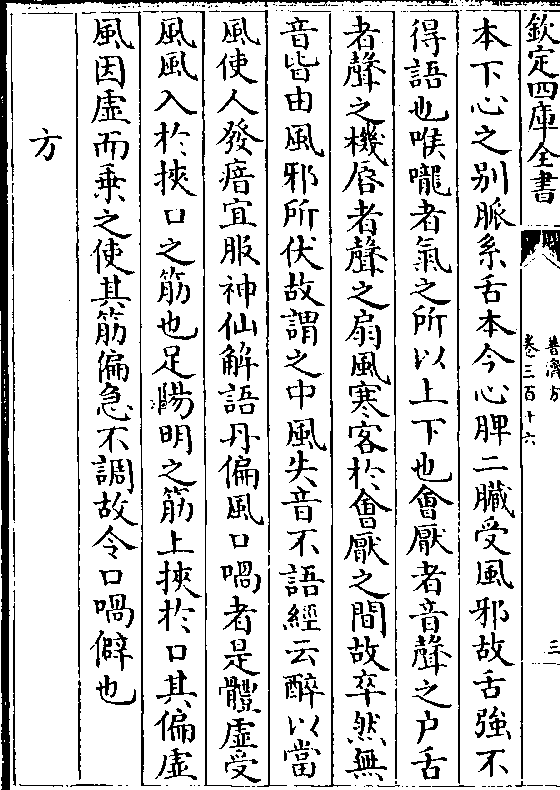 欽定四庫全書
普濟方
卷三百十六
三
本下心之别脈系舌本今心脾二臟受風邪故舌強不
得語也喉嚨者氣之所以上下也會厭者音聲之户舌
者聲之機唇者聲之扇風寒客於會厭之間故卒然無
音皆由風邪所伏故謂之中風失音不語經云醉以當
風使人發瘖宜服神仙解語丹偏風口喎者是體虚受
風風入於挾口之筋也足陽明之筋上挾於口其偏虚
風因虚而乗之使其筋偏急不調故令口喎僻也
方